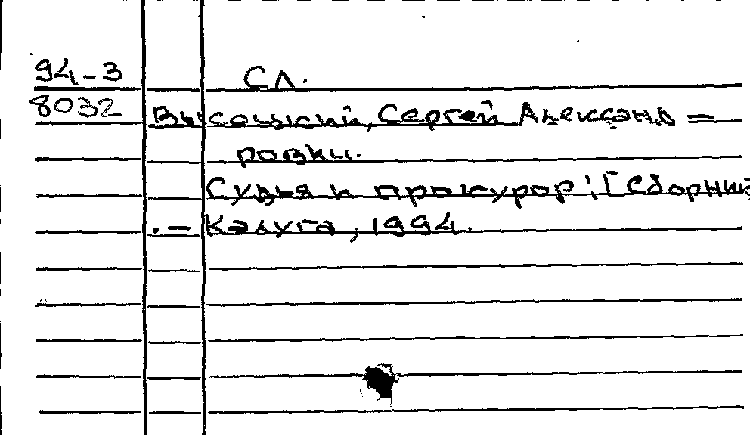 94-3 Сл.
8032 Высоцкий, Сергей Александ-
рович.
Судья и прокурор: [Сборник
. - Калуга, 1994.